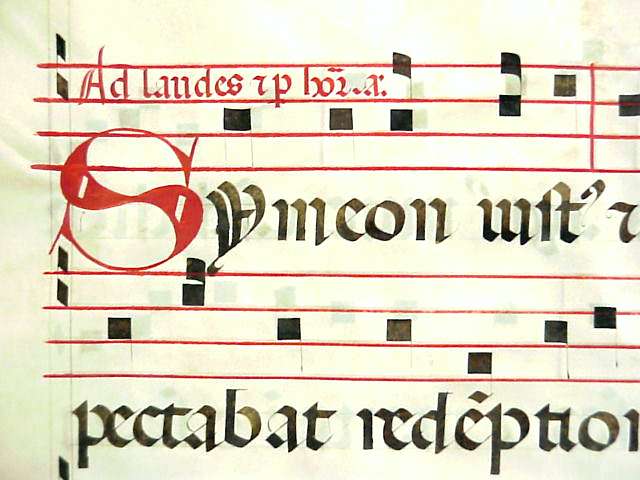 Ad laudes ⁊ p hor̃. a.
Symeon iust᷒ ⁊
pectabat redẽption